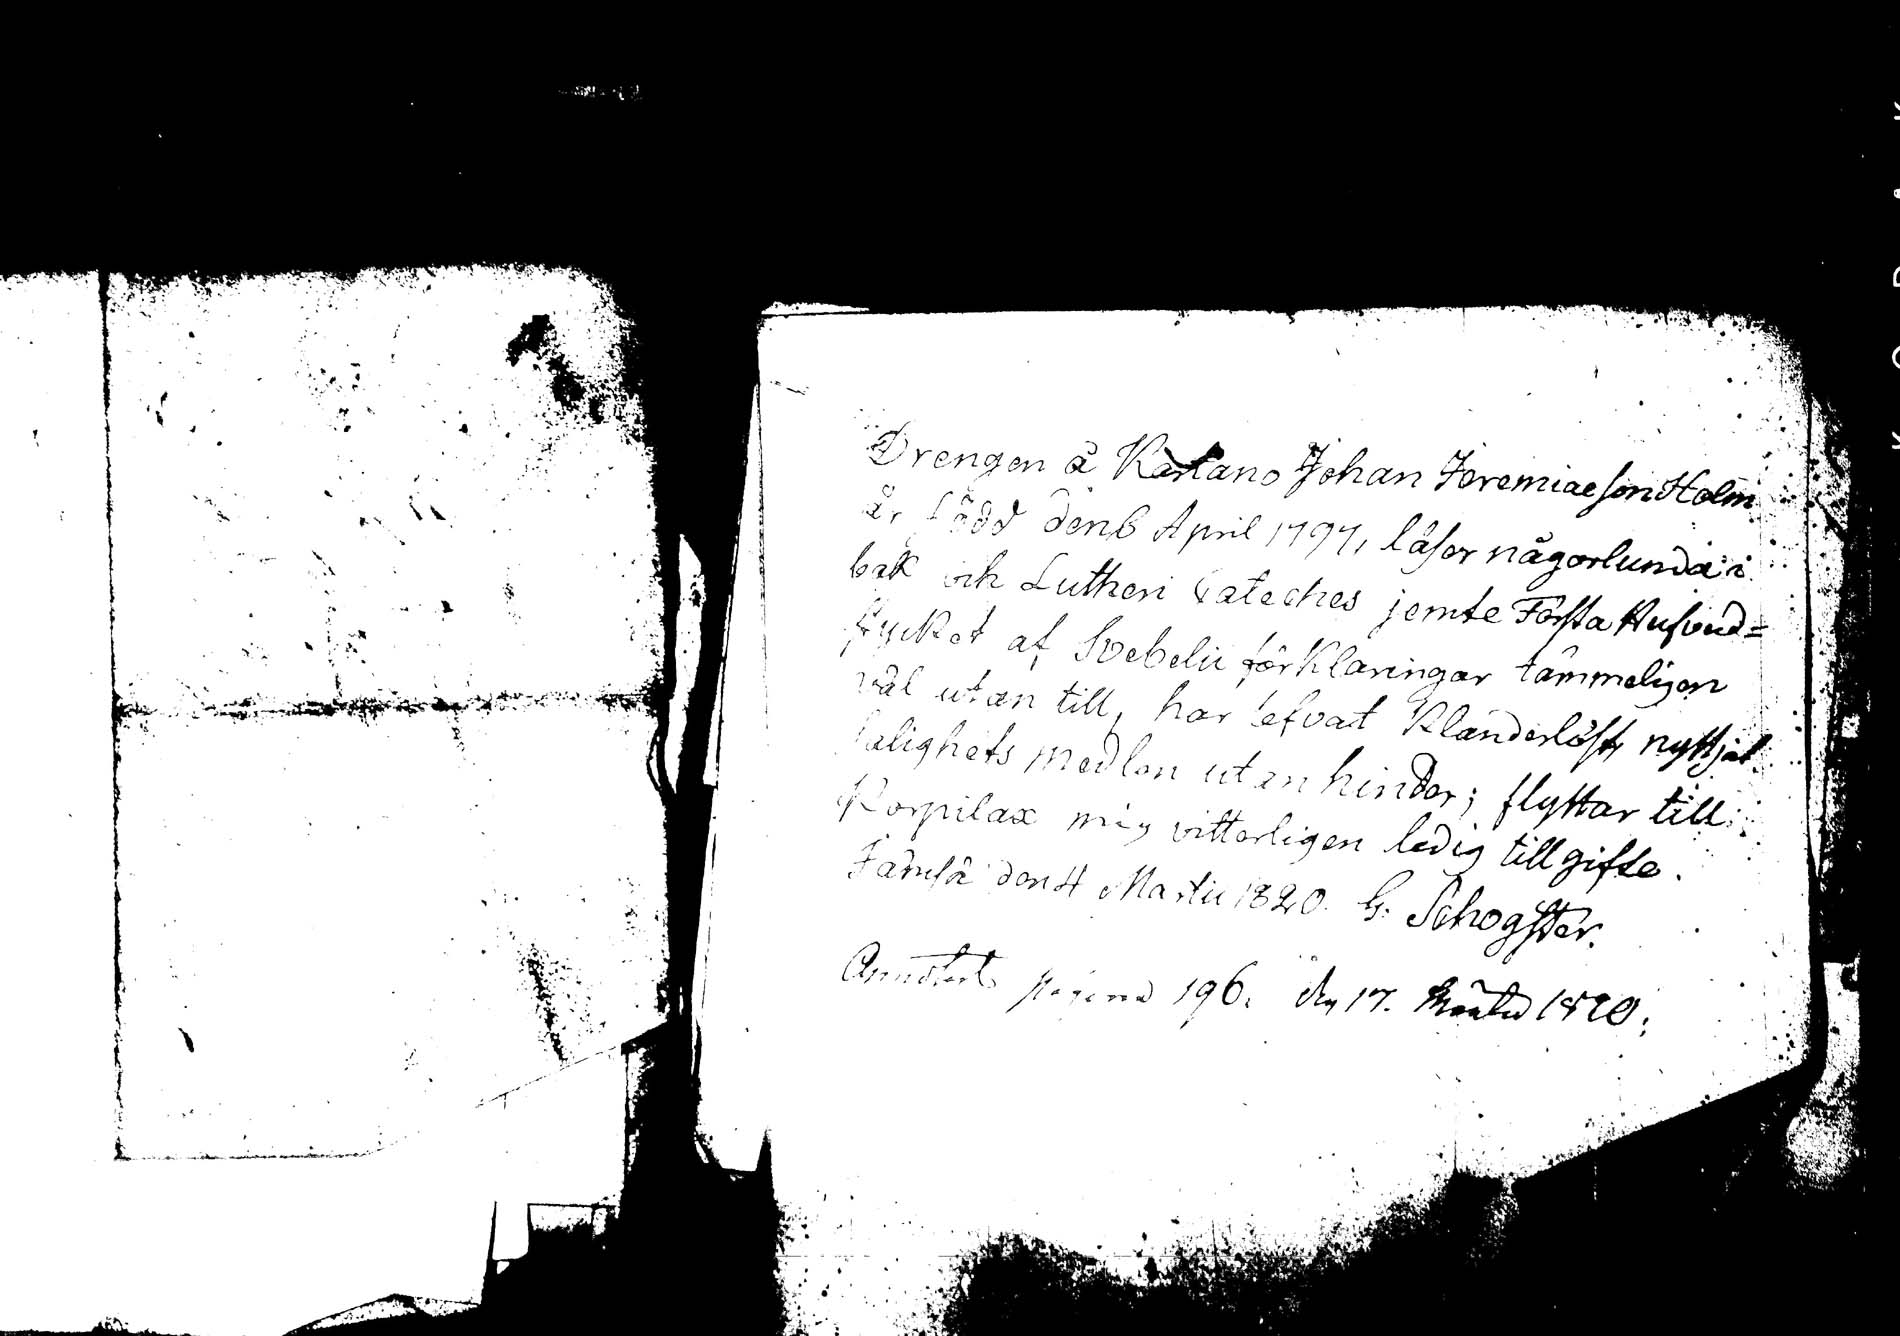 Drengen å Kartano Johan JeremiaesonHolm
är född den 6 April 1797, läser någorlunda i
bok och Lutheri Cateches jemte Första Hufvud=
stycket af Svebelii förklaringar tämmeligen
väl utan till, har lefvat Klanderlöst, nyttjat
salighets medlen utan hinder; flyttar till
Korpilax mig vitterligen ledig till gifte.
Jämsä den 4 Martii 1820. G. Schogster.
Annoterts pagina 196. den 17. Martii 1820.